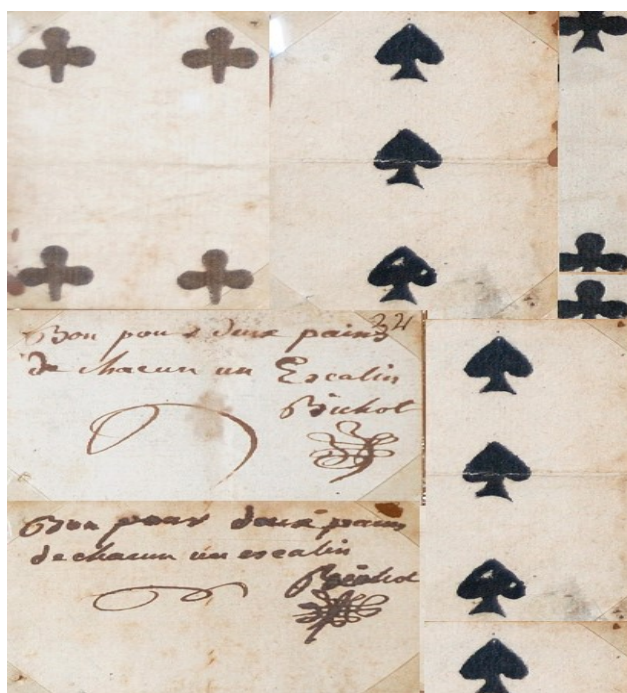 22
Bon pour deux pains
de chacun un Escalin
Bichot
Bon pour deux pains
de chacun un escalin
Bichot